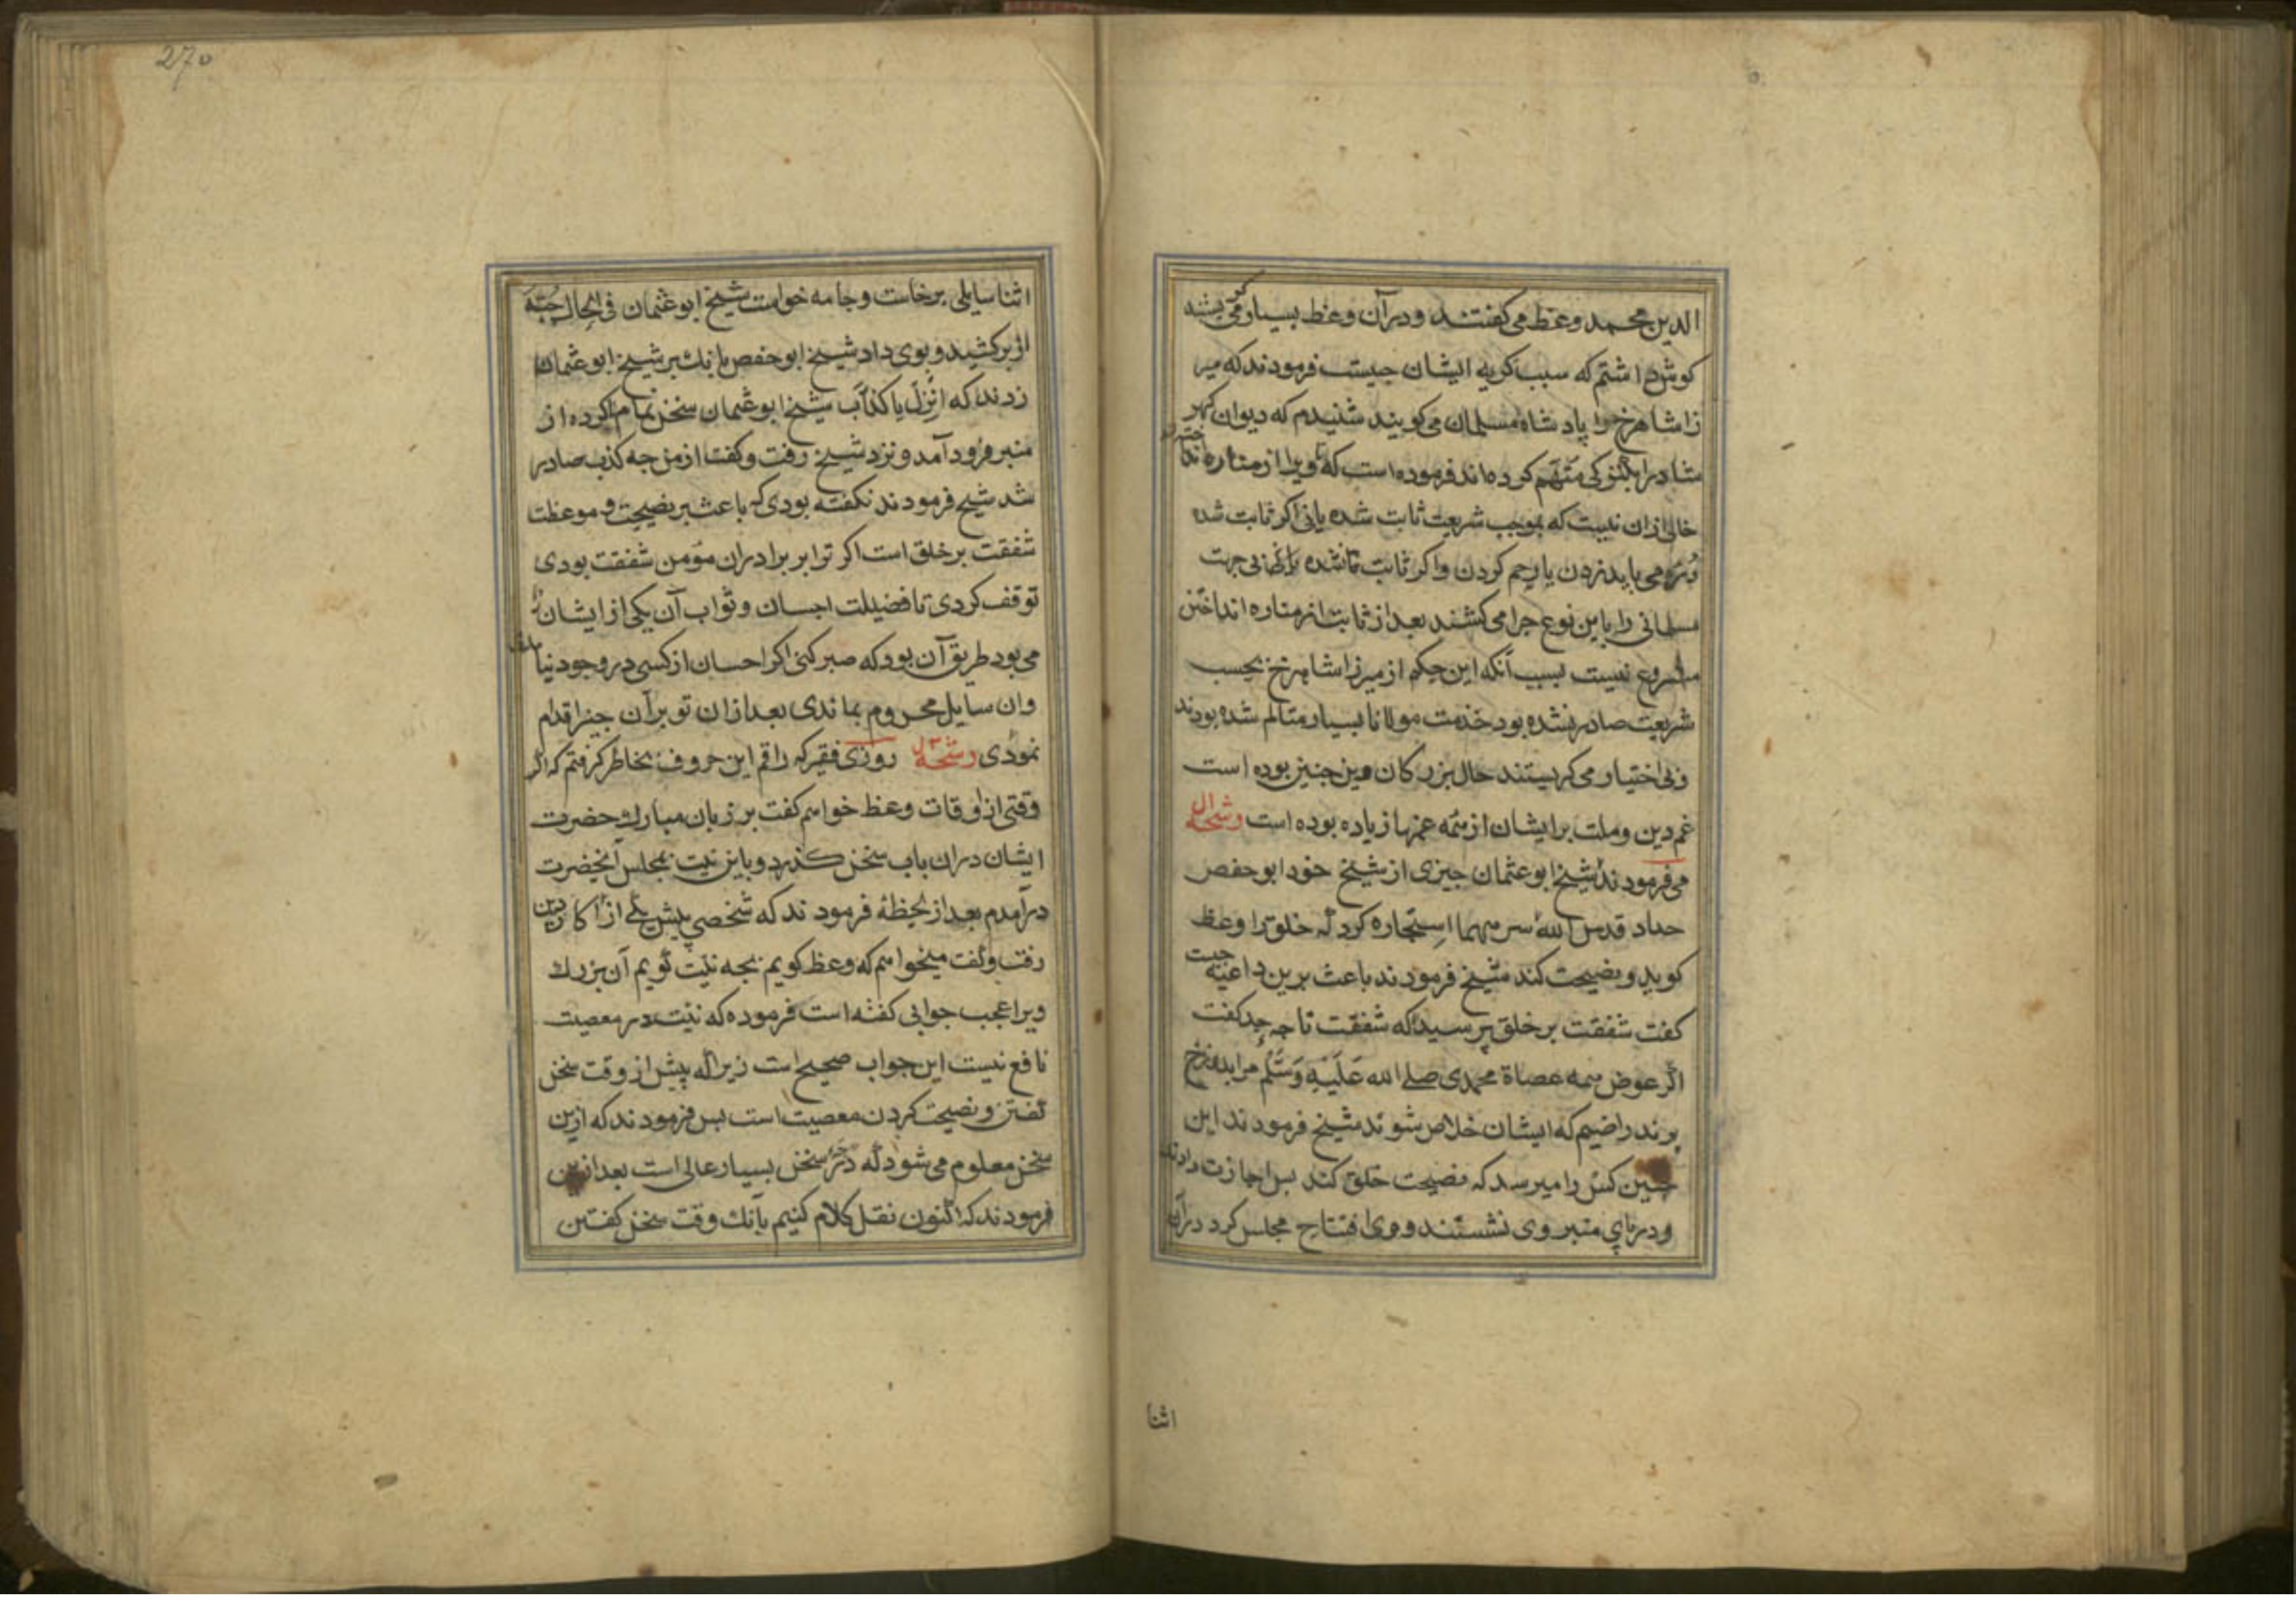 الدین محمد وعظ می کفتند و در آن وعظ بسیار می
کوش داشتم که سبب کریه ایشان جیست فرمودند که میر
زا شاهرخ را پادشاه مسلمان می کویند شنیدم که دیوان
متهم کرده اند فرموده است که ویرا از مناره
خالی ازان نیست که بموجب شریعت ثابت شده یانی اکر ثابت شده
دره می باید زدن یا رجم کردن واکر ثابت ناشده جهت
مسلمانی را باین نوع جرا می کشند بعد از ثابت از مناره انداختن
مشروع نیست بسبب آنکه این حکم از میرزا شاهرخ بحسب
شریعت صادر نشده بود خدمت مولانا بسیار متالم شده بودند
و بی اختیار می کریستند حال بزرکان دین جنین بوده است
غم دین وملت بر ایشان از همه غمها زیاده بوده است رشحه
می فرمودند شیخ ابو عثمان جیزی از شیخ خود ابو حفص
حداد قدس الله سرهما استجاره کرد که خلق را وعظ
کوید و نصیحت کند شیخ فرمودند باعث برین داعیه جیست
کفت شفقت بر خلق پرسید که شفقت تا جه حد کفت
اکر عوض همه عصاة محمدی صلی الله علیه وسلم مرا بدوزخ
برند راضیم که ایشان خلاص شوند شیخ فرمودند این
جنین کس را میرسد که نصیحت خلق کند بس اجازت دادند
و در پای منبر وی نشستند و وی افتتاح مجلس کرد در آن
اثنا
270
اثنا سایلی برخاست و جامه خواست شیخ ابو عثمان فی الحال جبه
از بر کشید و بوی داد شیخ ابو حفص بانك بر شیخ ابو عثمان
زدند که انزل یا کذاب شیخ ابو عثمان سخن تمام ناکرده از
منبر فرود آمد و نزد شیخ رفت و کفت از من جه کذب صادر
شد شیخ فرمودند نکفته بودی که باعث بر نصیحت و موعظت
شفقت بر خلق است اکر ترا بر برادران مؤمن شفقت بودی
توقف کردی تا فضیلت احسان و ثواب آن یکی از ایشان را
می بود طریق آن بود که صبر کنی اکر احسان از کسی در وجود نیامدی
وان سایل محروم بماندی بعد ازان تو بر آن جیز اقدام
نمودی رشحه روزی فقیر که راقم این حروف بخاطر کرفتم که اکر
وقتی از اوقات وعظ خواهم کفت بر زبان مبارك حضرت
ایشان دران باب سخن کذرد و باین نیت بمجلس آنحضرت
درآمدم بعد از لحظۀ فرمودند که شخصی پیش یکی از اکابر دین
رفت و کفت میخواهم که وعظ کویم بجه نیت کویم آن بزرك
ویرا عجب جوابی کفته است فرموده که نیت در معصیت
نافع نیست این جواب صحیح است زیرا که پیش از وقت سخن
کفتن و نصیحت کردن معصیت است بس فرمودند که ازین
سخن معلوم می شود که سخن بسیار عالی است بعد ازین
فرمودند که اکنون نقل کلام کنیم بآنك وقت سخن کفتن